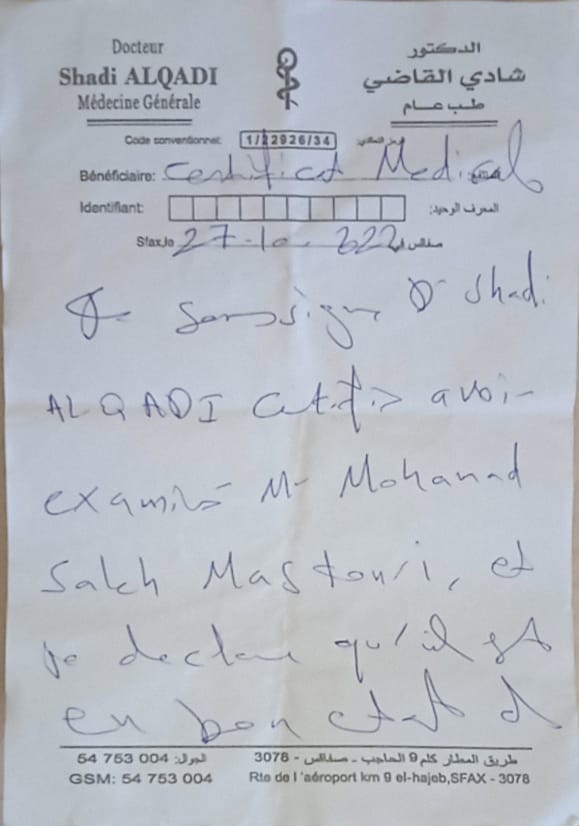 Docteur
Shadi ALQADI
Médecine Générale
الدكتور
شادي القاضي
طب عام
Code conventionnel: 1/22926/34
Bénéficiaire: Certificat Medical
Identifiant: المعرف الوحيد:
Sfax,le 27-10. صفاقس في
Je soussigne Dr Shadi
ALQADI certifie avoir
examiné Mr Mohanad
Saleh Mastouri, et
je declare qu'il est
en bon etat d
54 753 004 :الجوال
طريق المطار كلم 9 الحاجب - صفاقس - 3078
GSM: 54 753 004
Rte de l'aéroport km 9 el-hajeb,SFAX - 3078